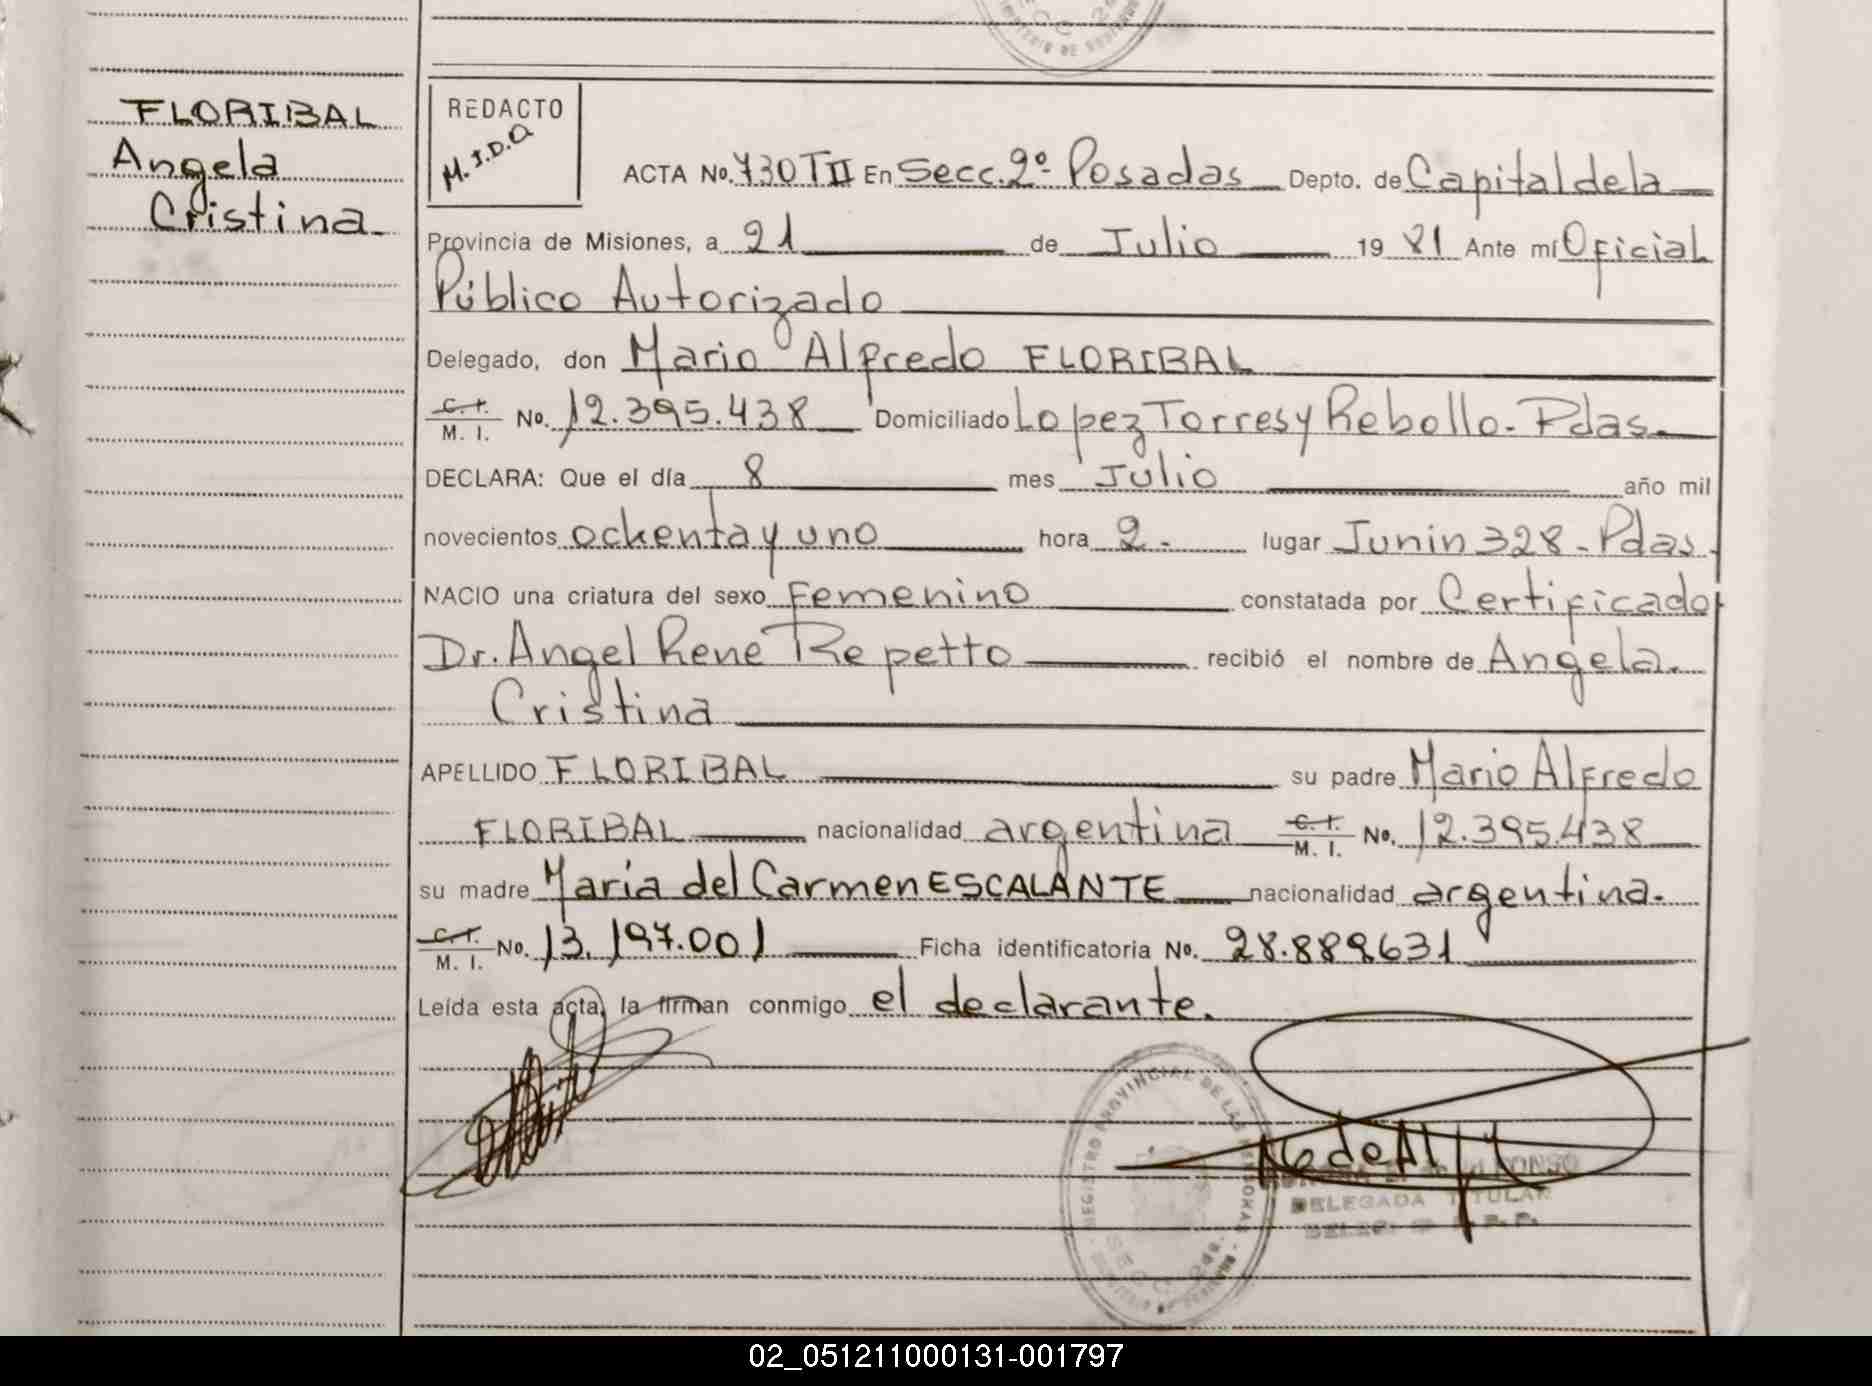 FLORIBAL
Angela
Cristina.
REDACTO
M.I.D.A
ACTA No. 730 TII En Secc. 2º Posadas Depto. de Capital de la
Provincia de Misiones, a 21 de Julio 19 81 Ante mí Oficial
Público Autorizado
Delegado, don Mario Alfredo FLORIBAL
C. I. M. I. No. 12.395.438 Domiciliado Lopez Torres y Rebollo. Pdas.
DECLARA: Que el día 8 mes Julio año mil
novecientos ochenta y uno hora 2. lugar Junin 328. Pdas.
NACIO una criatura del sexo Femenino constatada por Certificado
Dr. Angel Rene Repetto recibió el nombre de Angela.
Cristina
APELLIDO FLORIBAL su padre Mario Alfredo
FLORIBAL nacionalidad argentina C. I. M. I. No. 12.395.438
su madre María del Carmen ESCALANTE nacionalidad argentina.
C. I. M. I. No. 13.197.001 Ficha identificatoria No. 28.889631
Leída esta acta, la firman conmigo el declarante.
REGISTRO PROVINCIAL DE LAS PERSONAS
DELEGADA TITULAR
02_051211000131-001797